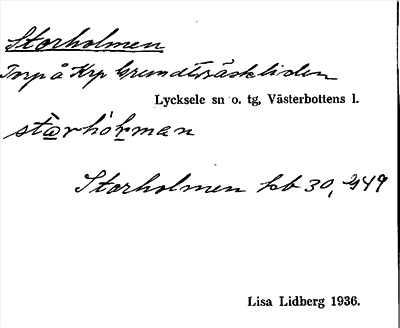 Storholmen
Torp å Krp Grundträskliden
Lycksele sn o. tg, Västerbottens l.
Storholmen kb 30,
Lisa Lidberg 1936.